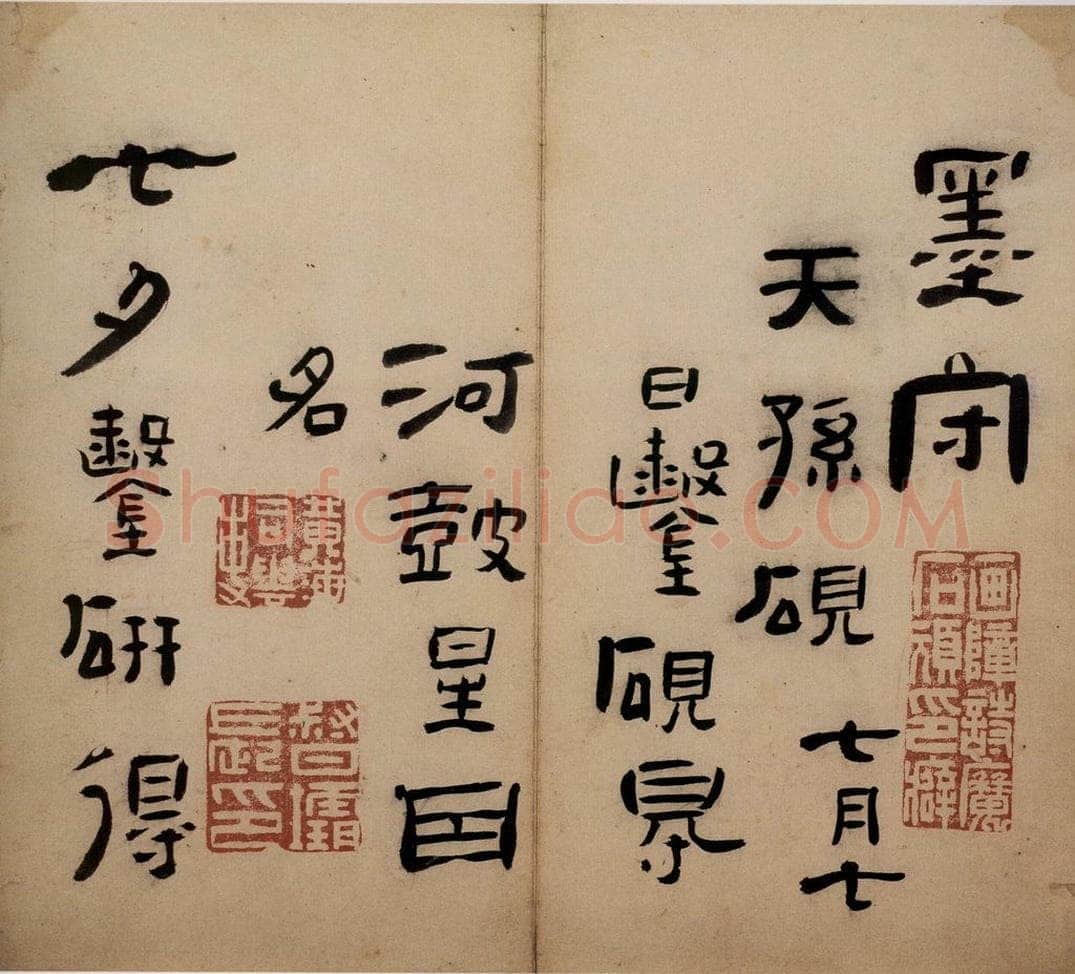 墨守
天孫硯 七月七
日鑿硯㝵
河鼓星囙
名
七夕鑿研得
Shufaziliao.COM